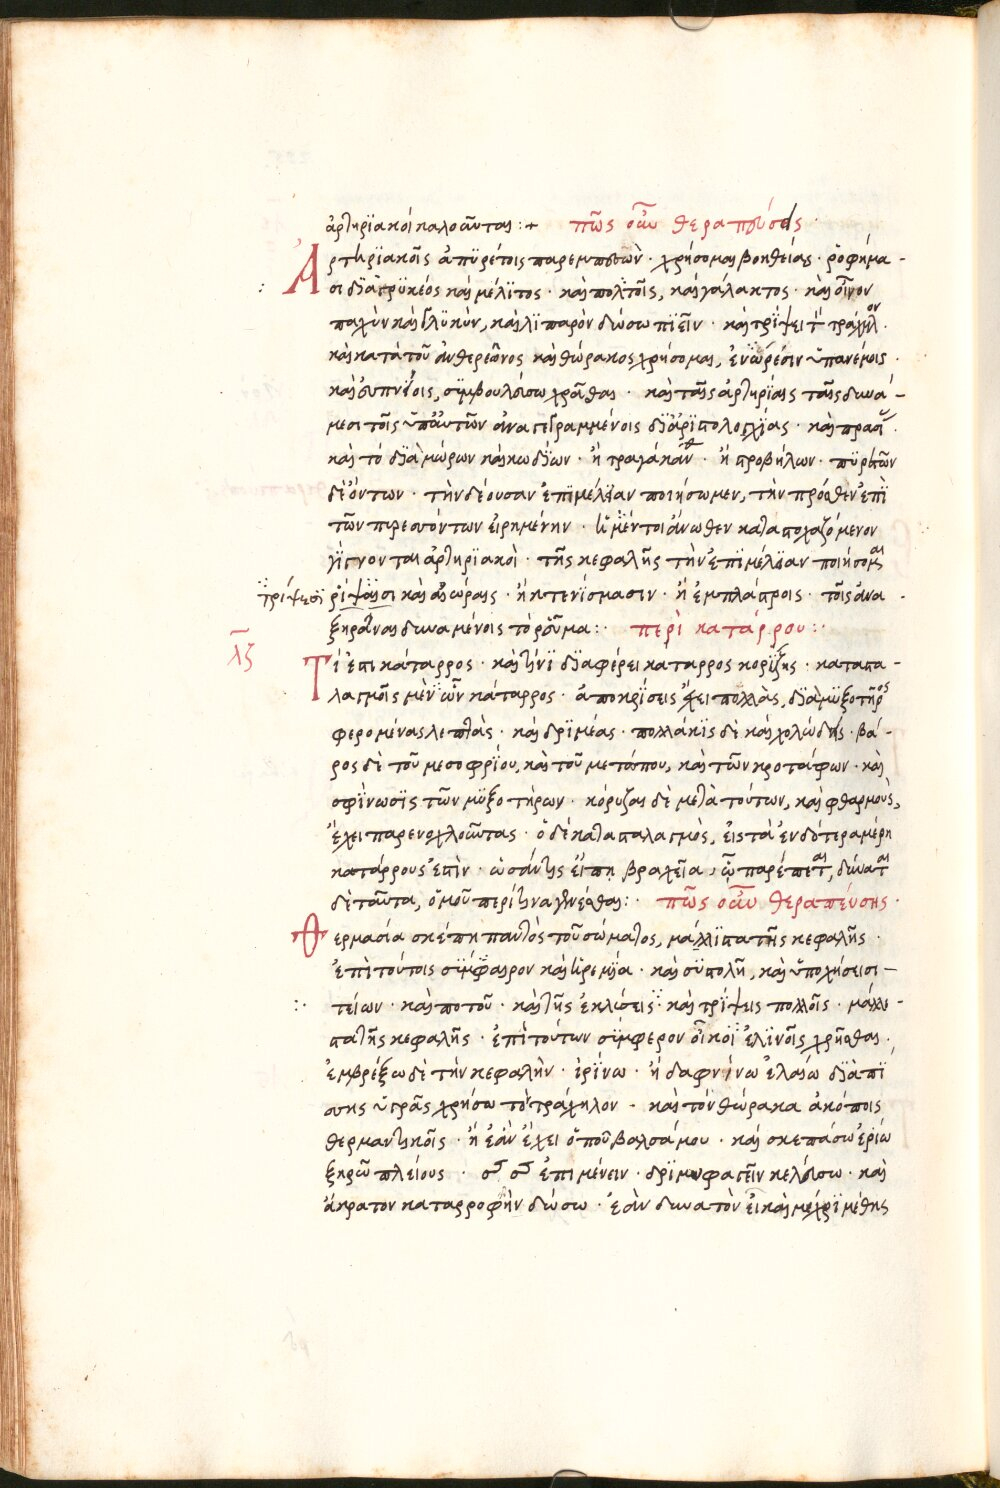 ἀρτηρϊακοὶ καλοῦνται :+ πῶς οὖν θεραπεύσεις ·
Ἀρτηρϊακοῖς ἀπϋρέτοις παρεμπεσὼν · χρήσομαι βοηθείαις · ῥοφήμα -
σι διὰ ϊτρϋκέος καὶ μέλϊτος · καὶ πολτοῖς, καὶ γάλακτος · καὶ οἶνον
παχὺν καὶ γλϋκὺν, καὶ λϊπαρὸν δώσω πϊεῖν · καὶ τρίψει τ τράχηλον ·
καὶ κατὰ τοῦ ἀνθερεῶνος καὶ θώρακος χρήσομαι, ὑπανέμοις ·
καὶ εὐπνόοις, σϋμβουλεύσω χρῆσθαι · καὶ ταῖς ἀρτηρίαις ταῖς δυνα -
μεσι τοῖς ὑπ' αὐτῶν ἀναγεγραμμένοις
καὶ τὸ διὰ μώρων καὶ κωδϊῶν · ἢ τραγάκανθ · ἢ στροβήλων · πϋρετῶν
δὲ ὄντων · τὴν δέουσαν ἐπϊμέλειαν ποιήσωμεν, τὴν πρόσθεν ἐπὶ
τῶν πυρεσσόντων εἰρημένην · εἰ μέντοι ἄνωθεν καταστοχαζόμενον
γίγνονται ἀρτηρϊακοὶ · τῆς κεφαλῆς τὴν ἐπϊμέλειαν ποιήσομαι
τρίψεσϊ ῥίψαϊσι καὶ αἰώραις · ἢ κτενίσμασιν · ἢ ἐμπλάστροις · τοῖς ἀνα -
ξηρᾶναι δυναμένοις τὸ ῥεῦμα :· περὶ κατάρρου :·
λζ Τί ἐστι κάταρρος · καὶ τίνϊ διαφέρει κάταρρος κορϊζης · καταστα -
λαγμοῖς μὲν ὢν κάταρρος · ἀποκρίσεις ἔχει πολλὰς, διὰ μϋξοτῆρος
φερομένας λεπτὰς · καὶ δρϊμέας · πολλάκϊς δὲ καὶ χολώδεις · βά -
ρος δὲ τοῦ μεσοφρίου, καὶ τοῦ μετώπου, καὶ τῶν κροτάφων · καὶ
σφϊνωσϊς τῶν μϋξοτήρων · κόρυζαι δὲ μετὰ τούτων, καὶ φθαρμοὺς,
ἔχει παρενοχλοῦντας · ὁ δὲ κατασταλαγμὸς, εἰς τὰ ἐνδότερα μέρη
κατάρρους ἐστὶν · ὡσάντις εἴπη βραχεῖα, ᾧ παρέπεται, δύναται
δὲ ταῦτα, ὁμοῦ περί τινα γενέσθαι :· πῶς οὖν θεραπεύσης ·
Θερμασία σκέπη παντὸς τοῦ σώματος, μάλλϊστα τῆς κεφαλῆς ·
ἐπὶ τούτοις σϋμφαιρον καὶ ἠρεμία · καὶ σϋστολῆ, καὶ ὑποχήσει σι -
τείων · καὶ ποτοῦ · καὶ τῆς ἐκλύσεις · καὶ τρίψεις πολλοῖς · μάλλι -
στα τῆς κεφαλῆς · ἐπὶ τούτων σϋμφερον οἶκοϊ ἐλϊνοῖς χρῆσθαι ·
ἐμβρέξω δὲ τὴν κεφαλὴν · ἰρίνω · ἢ δαφνίνω ἐλαίω διὰ πϊ
σης ὑγρᾶς χρήσω τὸ τράχηλον - καὶ τὸν θώρακα ἀκόποις
θερμαντικοῖς · ἢ ἐὰν ἔχει ὀποῦ βαλσάμου · καὶ σκεπάσω ἐρίω
ξηρῶ πλείους · ἐπιμένειν · δρϊμυφαγεῖν κελεύσω · καὶ
ἄκρατον καταρροφὴν δώσω · ἐὰν δυνατὸν εἰ καὶ μέχρϊ μέθης